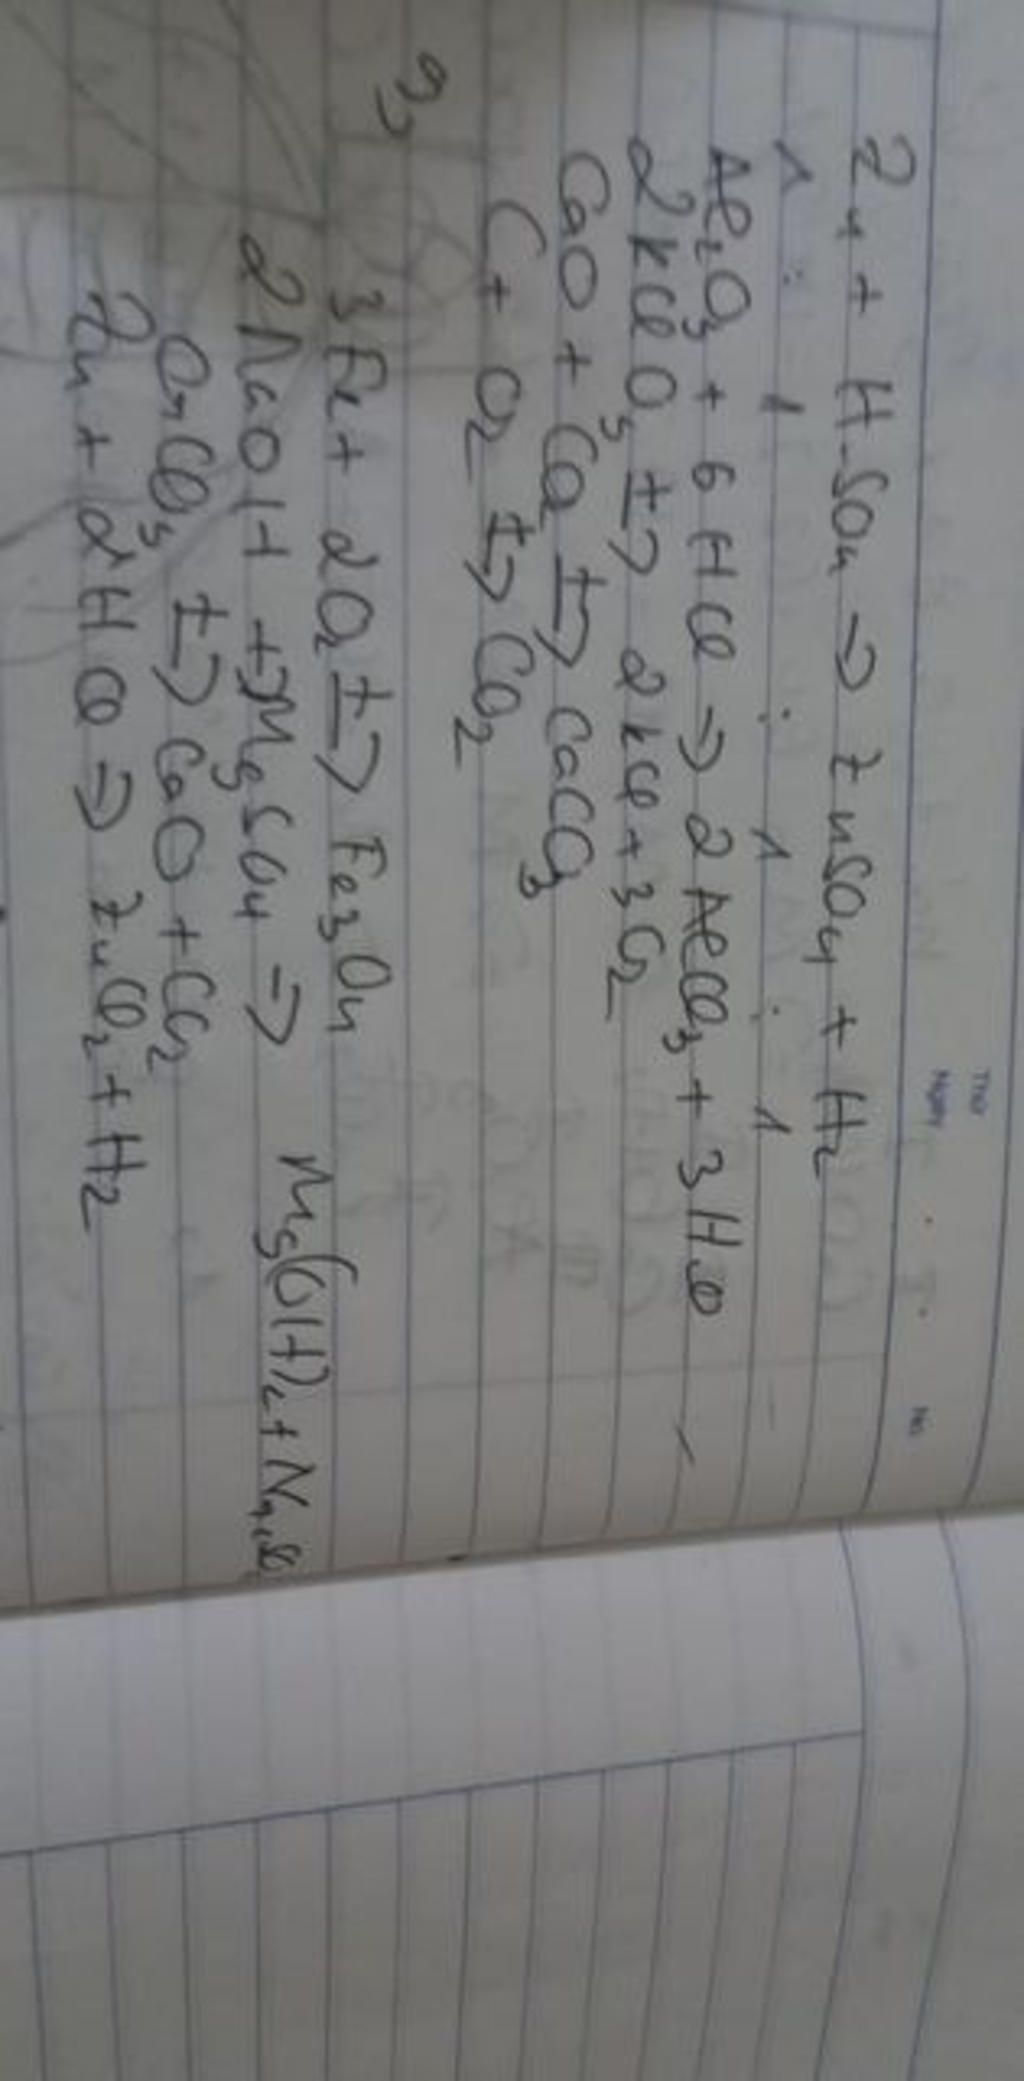 Thứ
Ngày
No.
Zn + H2SO4 → ZnSO4 + H2
1 : 1 : 1 : 1
Al2O3 + 6HCl → 2AlCl3 + 3H2O
2KClO3 t→ 2KCl + 3O2
CaO + CO2 t→ CaCO3
C + O2 t→ CO2
9,
3Fe + 2O2 t→ Fe3O4
2NaOH + MgSO4 → Mg(OH)2 +
CaCO3 t→ CaO + CO2
Zn + 2HCl → ZnCl2 + H2